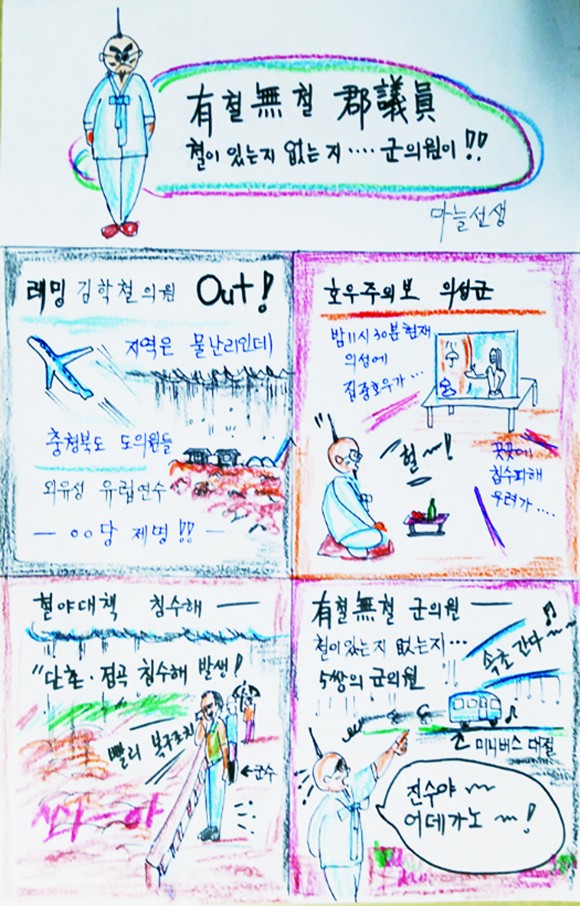 有철無철 郡議員
철이 있는지 없는지···· 군의원이!!
마늘선생
레밍 김학철의원 Out!
지역은 물난리인데
충청북도 도의원들
외유성 유럽연수
— ○○당 제명!! —
호우주의보 의성군
밤11시30분현재
의성에
집중호우가···
헐~~!
곳곳에
침수피해
우려가····
철야대책 침수해 —
"단촌·점곡 침수해 발생!
빨리 복구조치
←군수
有철無철 군의원 —
철이있는지 없는지···
5쌍의 군의원
속초 간다~~
미니버스 대절
진수야~~
어데가노~~!